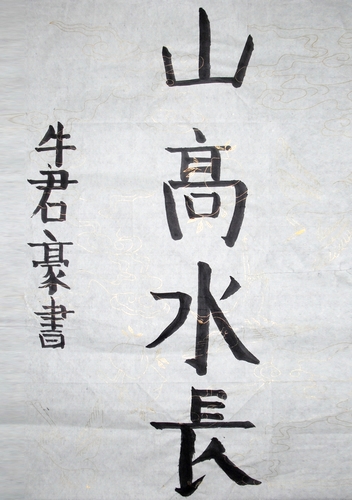 山高水長
牛君豪書